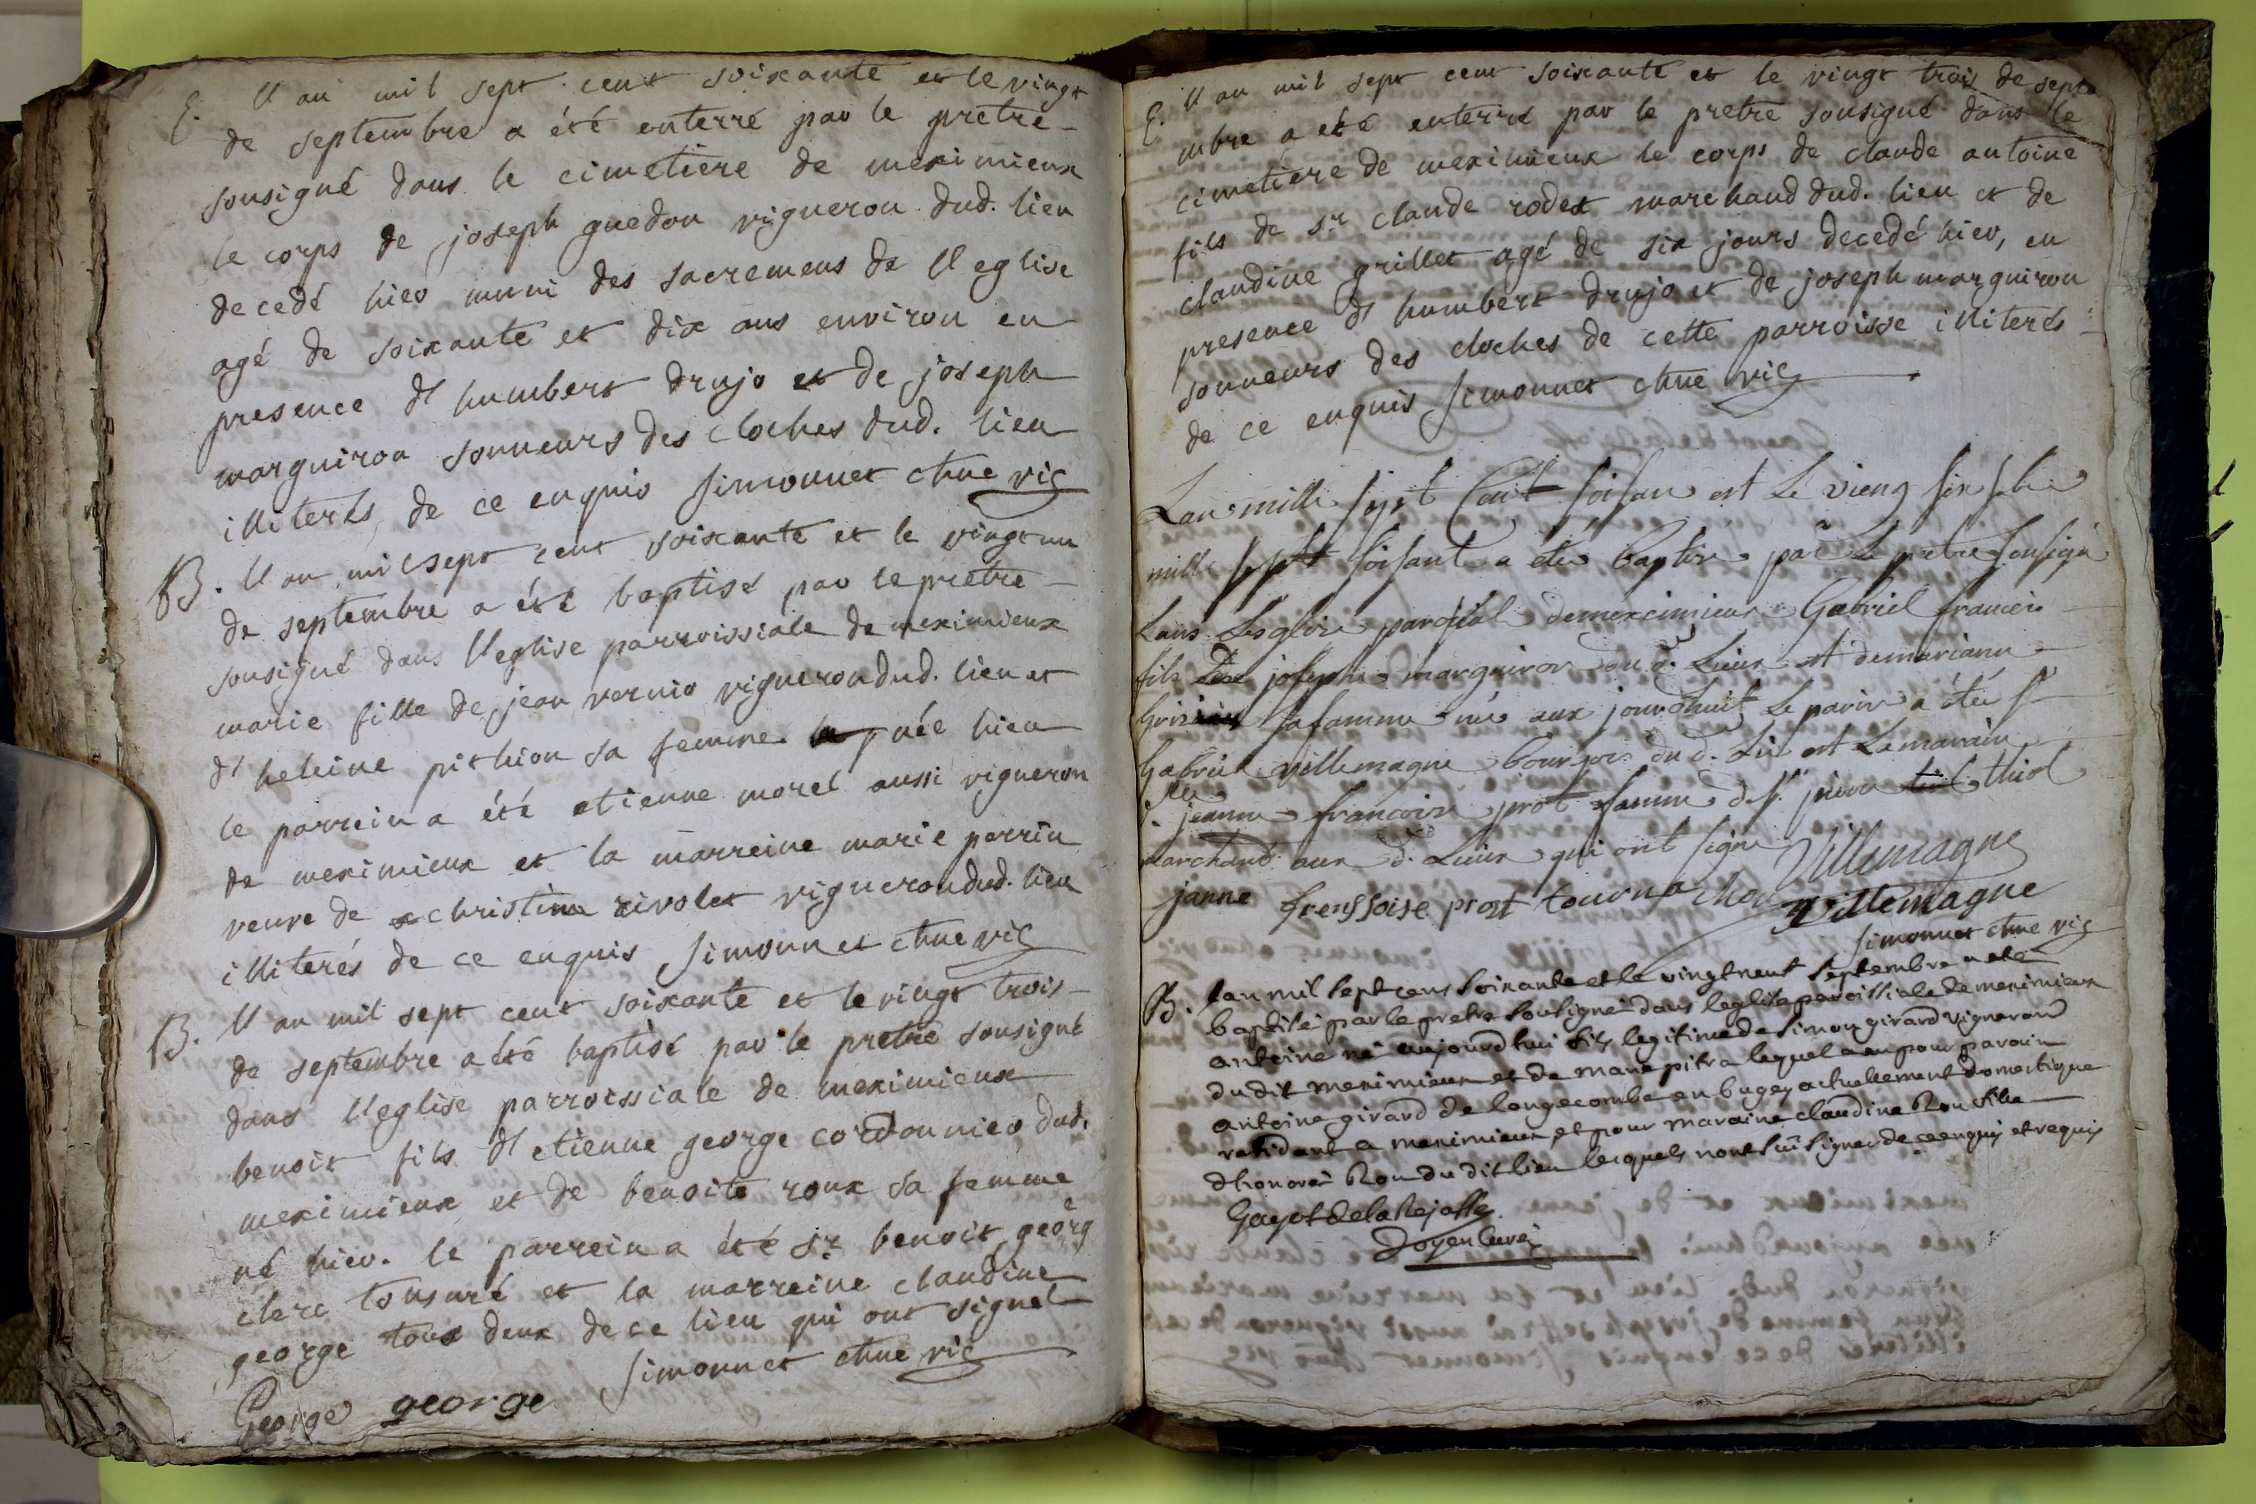 E. l'an mil sept cent soixante et le vingt
de septembre a été enterré par le pretre
sousigné dans le cimetiere de meximieux
le corps de joseph guedon vigneron dud. lieu
decedé hier muni des sacremens de l'eglise
agé de soixante et dix ans environ en
presence d'humbert drujo et de joseph
marguiron sonneurs des cloches dud. lieu
illiterés de ce enquis Simonnet chne vic
B. l'an mil sept cent soixante et le vingt un
de septembre a été baptisé par le pretre
sousigné dans l'eglise parroissiale de meximieux
marie fille de jean vernio vigneron dud. lieu et
d'heleine pithion sa femme née hier
le parrein a été etienne morel aussi vigneron
de meximieux et la marreine marie perrin
veuve de christin rivolet vigneron dud. lieu
illiterés de ce enquis Simonnet chne vic
B. l'an mil sept cent soixante et le vingt trois
de septembre a été baptisé par le pretre sousigné
dans l'eglise parroissiale de meximieux
benoit fils d'etienne george cordonnier dud.
meximieux et de benoite roux sa femme
né hier. le parrein a été sr. benoit georg
clerc tonsuré et la marreine claudine
george tous deux de ce lieu qui ont signé
Simonnet chne vic
George george
E. l'an mil sept cent soixante et le vingt trois de septe
mbre a été enterré par le pretre sousigné dans le
cimetiere de meximieux le corps de claude antoine
fils de sr. claude rodet marchand dud. lieu et de
claudine grillet agé de six jours decedé hier, en
presence d'humbert drujo et de joseph marguiron
sonneurs des cloches de cette parroisse illiterés
de ce enquis Simonnet chne vic
Lan mille sept Cent soisan est Le vieng six
mille sept soisant a etée baptise par Le pretre sousigné
dans Lesglise parosial demeximieux Gabriel francois
fils joseph marguiron du d. Lieux et demarianne
sa famme née aux jourdhuit Le parin a étée sr
Gabriel villemagne bourjois du d. Lie est La marain
d. jeanne francoise prost famme de sr. pierre thiol
marchand aux d. Lieux qui ont signe Villemagne
janne frenssoise prost tournachon Villemagne
Simonnet chne vic
B. Lan mil sept cens soixante et le vingtneuf septembre a eté
baptisé par le pretre sousigné dans leglise paroissiale de meximieux
antoine né aujourdhui fils legitime de simon girard vigneron
dudit meximieux et de marie pitra lequel a eu pour parain
antoine girard de longecombe en bugey actuellement domestique
residant a meximieux et pour maraine claudine Rou fille
dhonoré Rou du dit lieu lesquels nont sui signer de ce enquis et requis
Gayot de la Rejasse
Doyen Curé